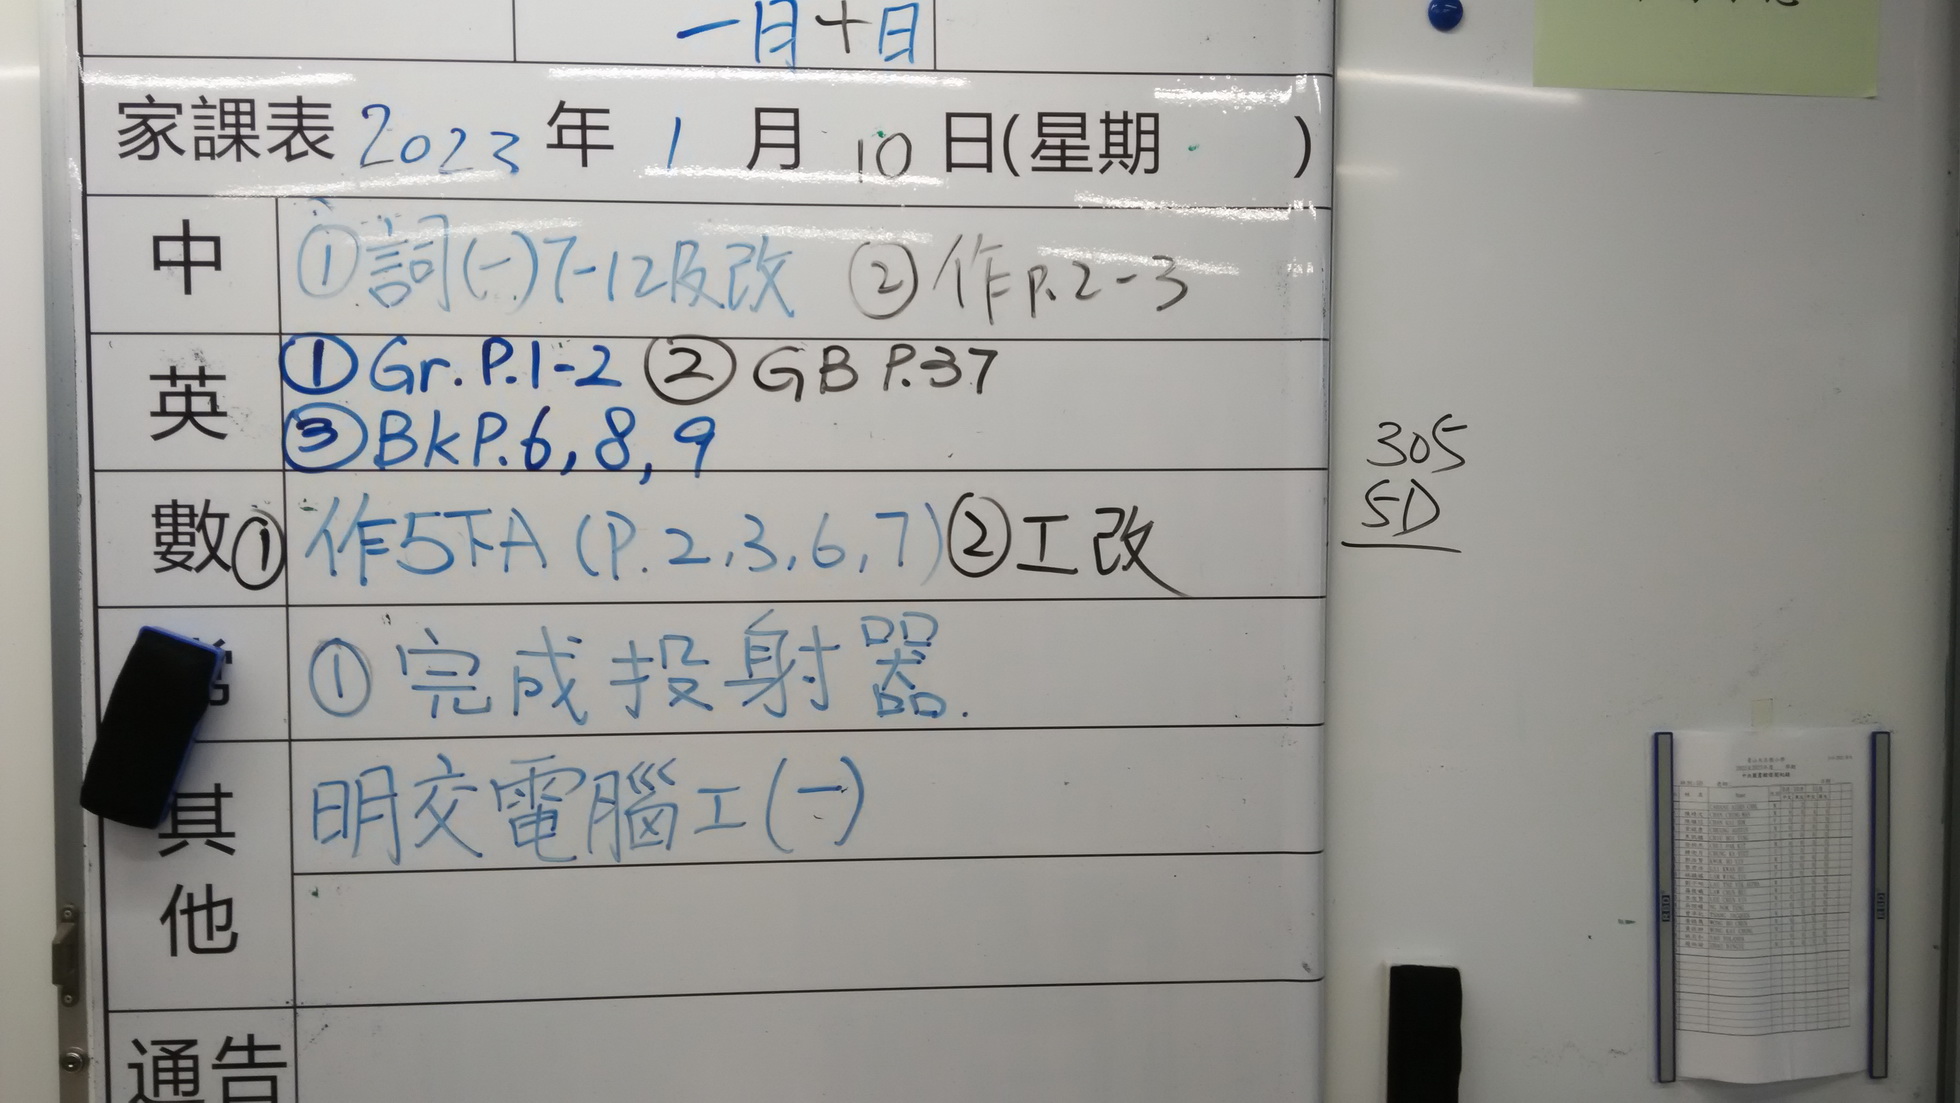 一月十日
家課表 2023 年 1 月 10 日(星期 )
中 ①詞(一)7-12及改 ②作P.2-3
英 ①Gr. P.1-2 ②GB P.37
③BK P.6, 8, 9
數 ①作5下A (P.2,3,6,7) ②工改
常 ①完成投射器.
其他 明交電腦工(一)
通告
305
5D